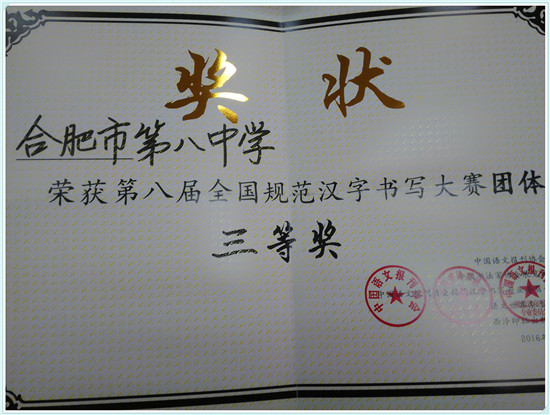 奖状
合肥市第八中学
荣获第八届全国规范汉字书写大赛团体
三等奖
中国语文报刊协会
2016年